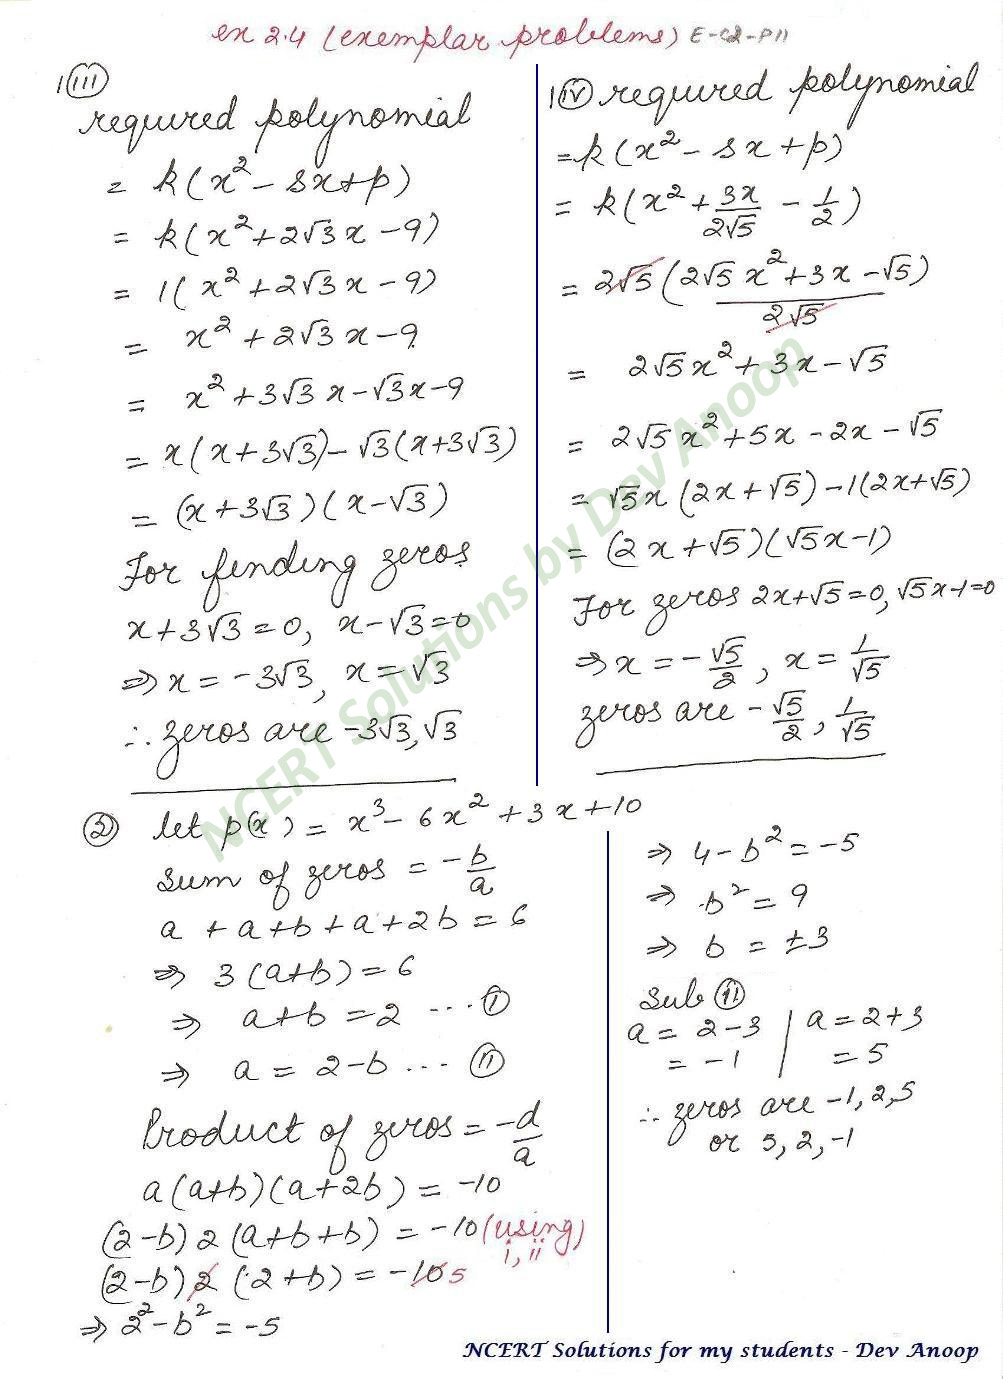 ex 2.4 (exemplar problems) E-C2-P11
1 (iii)
required polynomial
= k(x² - sx+p)
= k(x²+2√3x-9)
= 1(x²+2√3x-9)
= x²+2√3x-9
= x²+3√3x-√3x-9
= x(x+3√3)-√3(x+3√3)
= (x+3√3)(x-√3)
For finding zeros
x+3√3=0, x-√3=0
⇒ x = -3√3, x = √3
∴ zeros are -3√3, √3
1 (iv) required polynomial
= k(x² - sx+p)
= k(x² + 3x/2√5 - 1/2)
= 2√5(2√5x²+3x-√5)/2√5
= 2√5x²+3x-√5
= 2√5x²+5x-2x-√5
= √5x(2x+√5)-1(2x+√5)
= (2x+√5)(√5x-1)
For zeros 2x+√5=0, √5x-1=0
⇒ x = -√5/2, x = 1/√5
zeros are -√5/2, 1/√5
(2) let p(x) = x³-6x²+3x+10
Sum of zeros = -b/a
a + a+b+a+2b = 6
⇒ 3(a+b) = 6
⇒ a+b = 2 ... (i)
⇒ a = 2-b ... (ii)
Product of zeros = -d/a
a(a+b)(a+2b) = -10
(2-b)2(a+b+b) = -10 (using i, ii)
(2-b)2(2+b) = -10 5
⇒ 2²-b² = -5
⇒ 4-b² = -5
⇒ b² = 9
⇒ b = ±3
Sub (ii)
a = 2-3 | a = 2+3
= -1 | = 5
∴ zeros are -1, 2, 5
or 5, 2, -1
NCERT Solutions by Dev Anoop
NCERT Solutions for my students - Dev Anoop